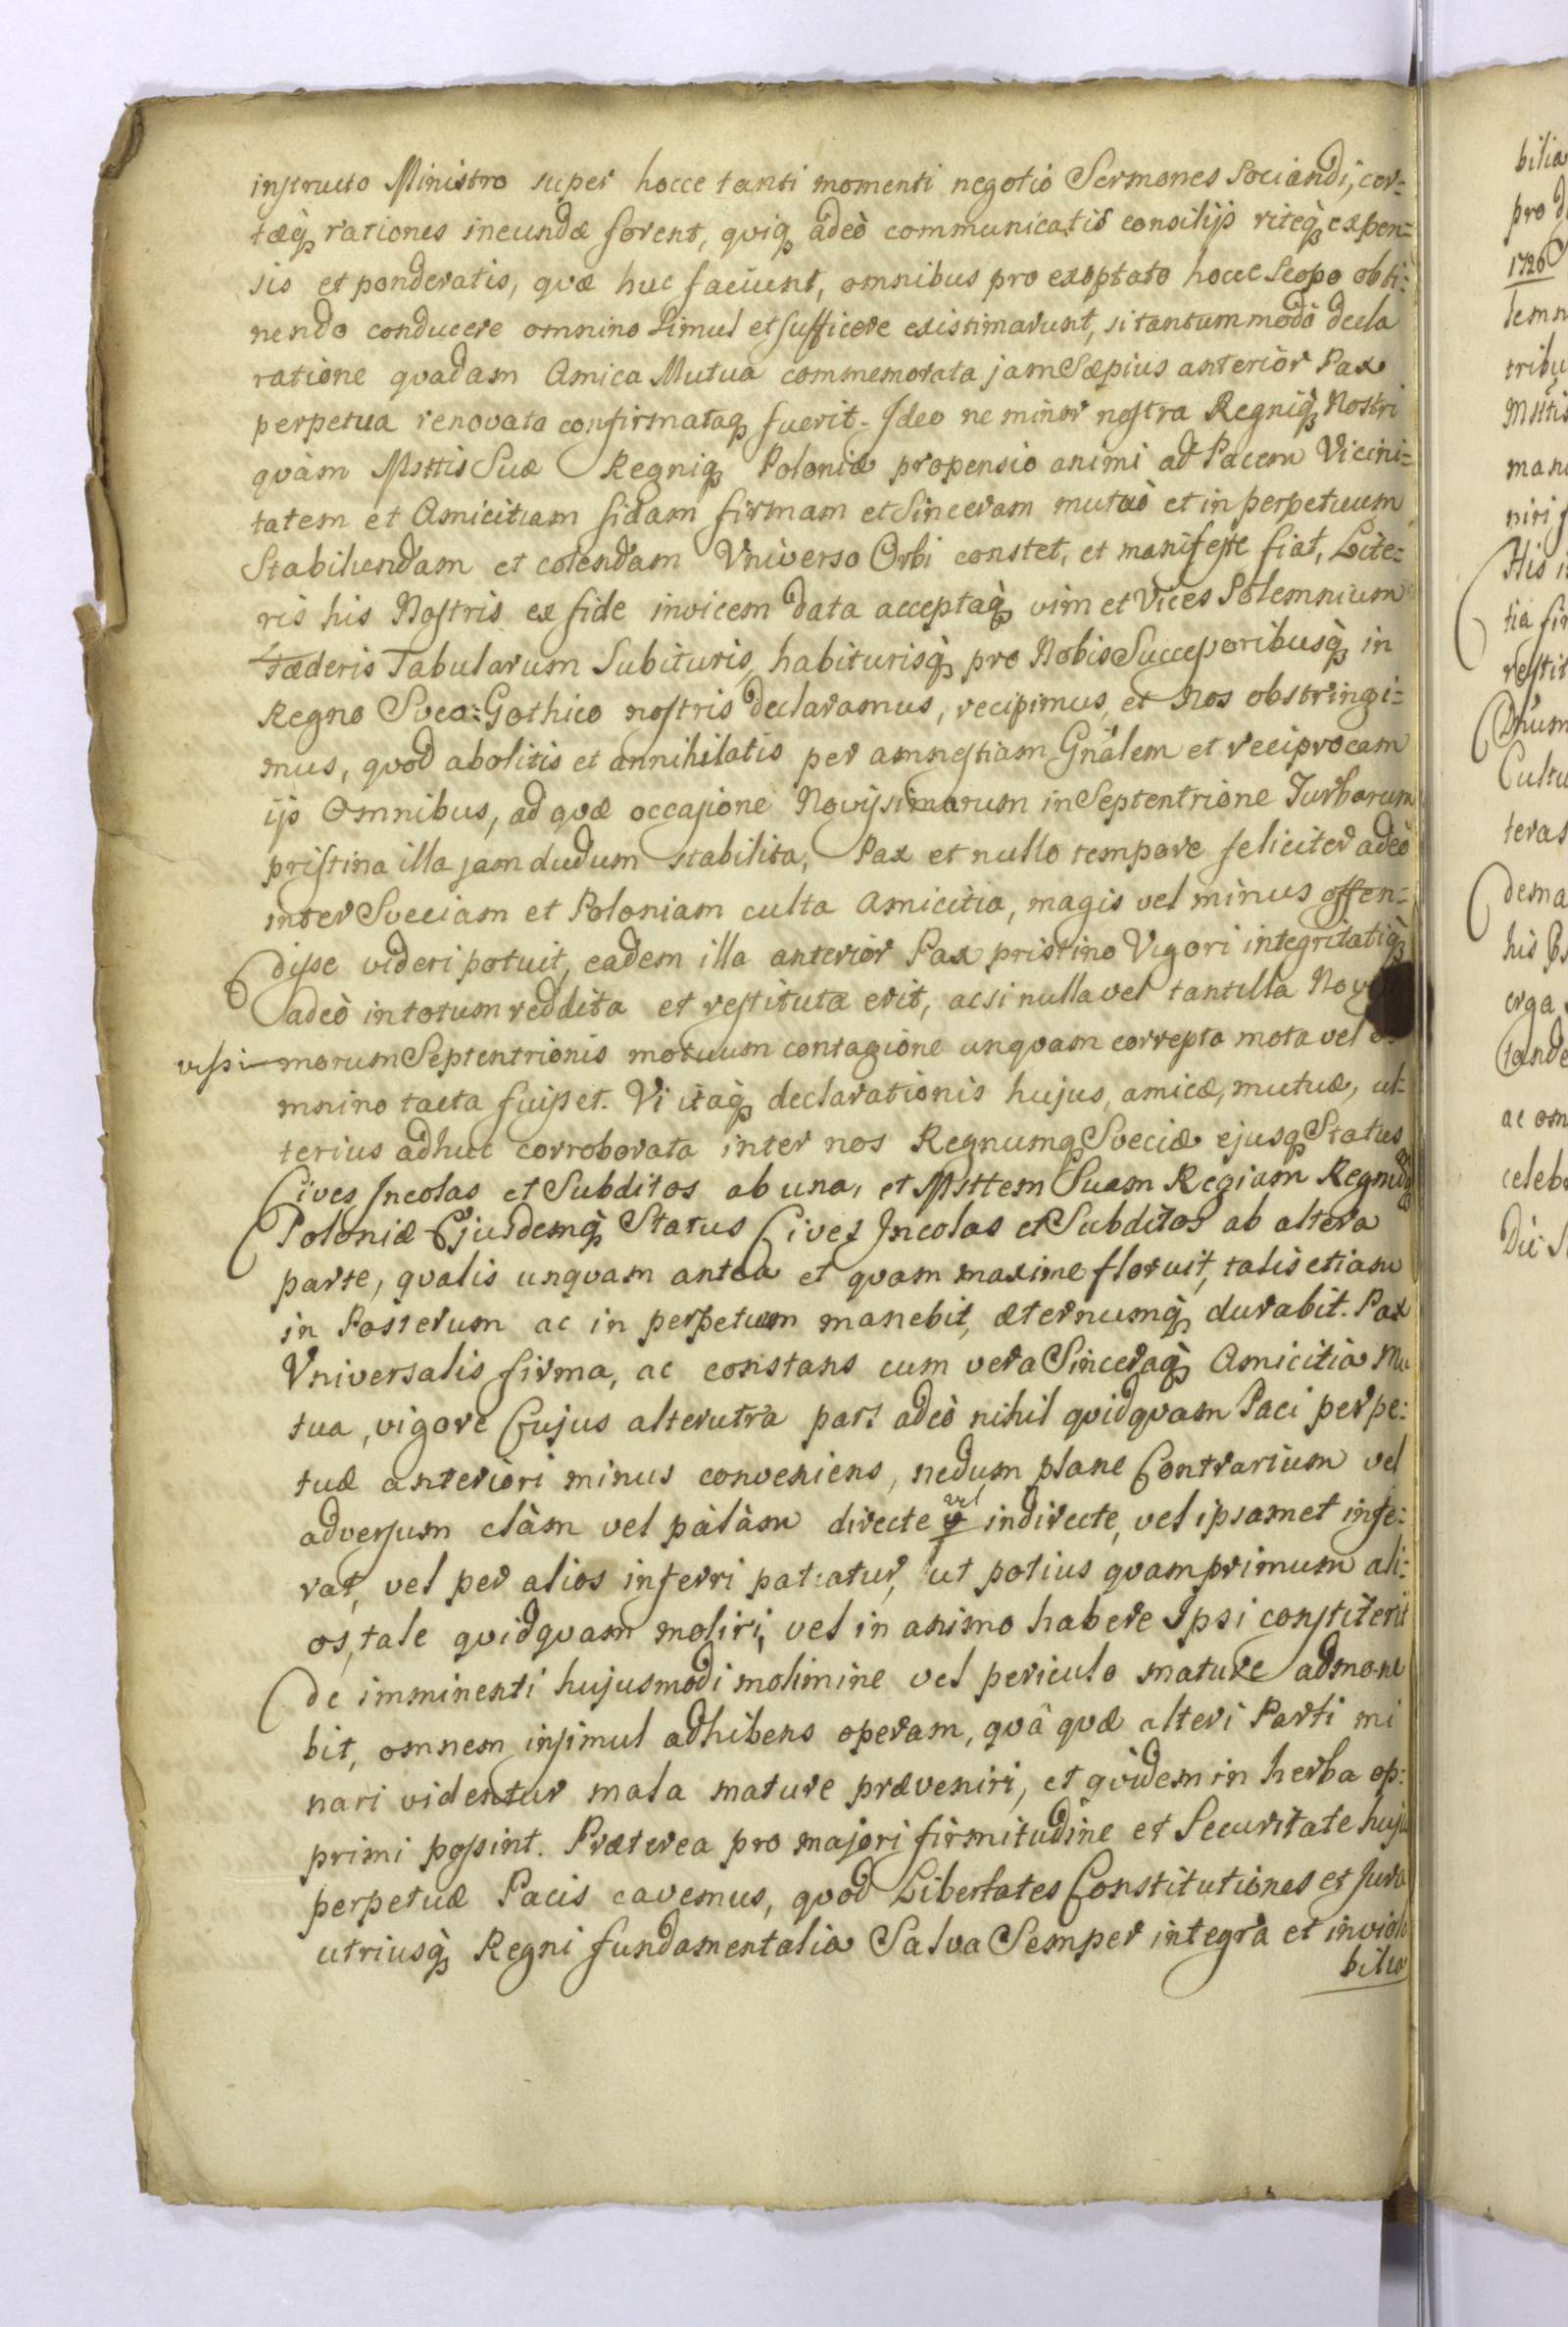 instructo Ministro super hocce tanti momenti negotio Sermones Sociandi, cer-
tæq3 rationes ineundæ forent, qviq3 adeò communicatis consilijs riteq3 expen-
sis et ponderatis, qvæ huc faciunt, omnibus pro exoptato hocce Scopo obti-
nendo conducere omnino Simul et sufficere existimarunt, si tantummodò decla
ratione qvadam Amica Mutua commemorata jam Sæpius anterior Pax
perpetua renovata confirmataq3 fuerit. Ideo ne minor nostra Regniq3 Nostri
qvàm Mttis Suæ Regniq3 Poloniæ propensio animi ad Pacem Vicini-
tatem et Amicitiam fidam firmam et Sinceram mutuò et in perpetuum
Stabiliendam et colendam Vniverso Orbi constet, et manifeste fiat, Lite-
ris his Nostris ex fide invicem data acceptaq3 vim et Vices Solemnium
Fæderis Tabularum Subituris, habiturisq3 pro Nobis Successoribusq3 in
Regno Sveo-Gothico nostris declaramus, recipimus, et Nos obstringi-
mus, qvod abolitis et annihilatis per amnestiam Gnãlem et reciprocam
ijs Omnibus, ad qvæ occasione Novissimarum in Septentrione Turbarum
pristina illa jam dudum stabilita, Pax et nullo tempore feliciter adeò
inter Sveciam et Poloniam culta Amicitia, magis vel minus offen-
disse videri potuit, eadem illa anterior Pax pristino Vigori integritatiq3
adeò in totum reddita et restituta erit, acsi nulla vel tantilla No
vissi-morum Septentrionis motuum contagione unqvam correpta mota vel o
mnino tacta fuisset. Vi itaq3 declarationis hujus, amicæ, mutuæ, ul-
terius adhuc corroborata inter nos Regnumq3 Sveciæ ejusq3 Status
Cives Incolas et Subditos ab una, et Mttem Suam Regiam Regnumq3
Poloniæ Ejusdemq3 Status Cives Incolas et Subditos ab altera
parte, qvalis unqvam antea et qvam maxime floruit, talis etiam
in Posterum ac in perpetuum manebit, æternumq3 durabit. Pax
Vniversalis firma, ac constans cum vera Sinceraq3 Amicitia Mu
tua, vigore Cujus alterutra pars adeò nihil qvidqvam Paci perpe-
tuæ anteriori minus conveniens, nedum plane Contrarium vel
adversum clàm vel pàlàm directe vel indirecte, vel ipsamet infe-
rat, vel per alios inferri patiatur, ut potius qvamprimum ali-
os, tale qvidqvam moliri, vel in animo habere Ipsi constiterit
de imminenti hujusmodi molimine vel periculo mature admone
bit, omnem insimul adhibens operam, qvâ qvæ alteri Parti mi
nari videntur mala mature præveniri, et qvidem in herba op-
primi possint. Præterea pro majori firmitudine et Securitate huju
perpetuæ Pacis cavemus, qvod Libertates Constitutiones et Jura
utriusq3 Regni fundamentalia Salva Semper integra et inviola
bilia
bilia
pro
1720
lemn
tribu
Mttis
man
niri
His
tia fir
restit
Dnum
Cultu
teras
dema
his
erga
tande
ac om
celeb
Die